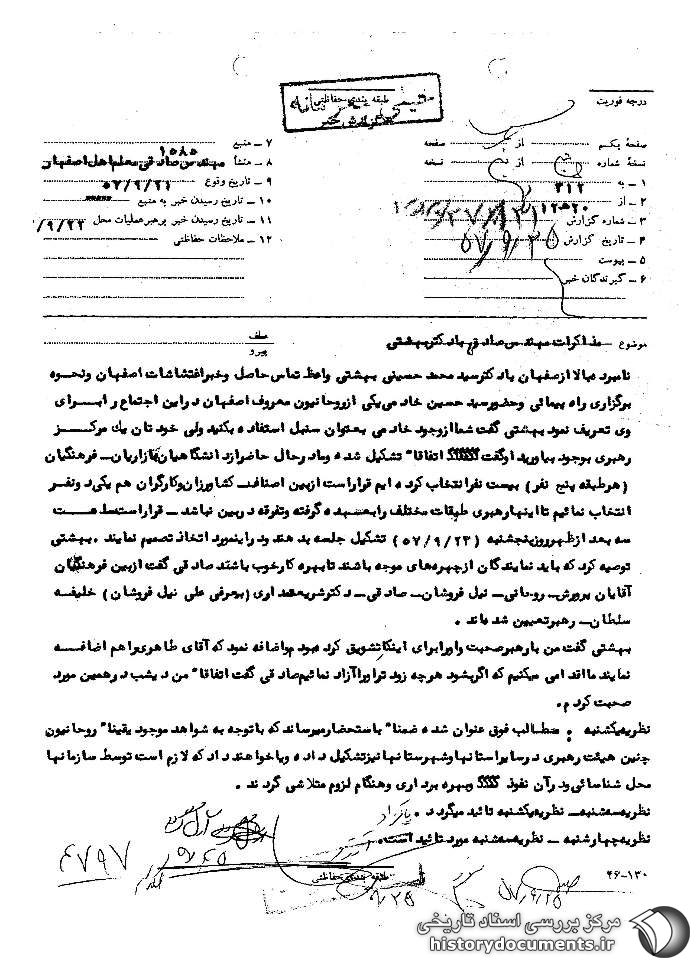 درجه فوریت
طبقه بندی حفاظتی
گزارش خبر
صفحه یکم از صفحه
نسخه شماره از نسخه
۱ ـ به ۳۱۲
۲ ـ از ۱۲ه۲۰
۳ ـ شماره گزارش
۴ ـ تاریخ گزارش ۵۷/۹/۲۵
۵ ـ پیوست
۶ ـ گیرندگان خبر
۷ ـ منبع ۱۵۸۵
۸ ـ منشأ مهندس صادقی معلم اهل اصفهان
۹ ـ تاریخ وقوع ۵۷/۹/۲۱
۱۰ ـ تاریخ رسیدن خبر به منبع
۱۱ ـ تاریخ رسیدن خبر برهبر عملیات محل ۹/۲۲/
۱۲ ـ ملاحظات حفاظتی
موضوع ـ مذاکرات مهندس صادقی با دکتر بهشتی
عطف
پیرو
نامبرده بالا از اصفهان با دکتر سید محمد حسینی بهشتی واعظ تماس حاصل و خبر اغتشاشات اصفهان و نحوه
برگزاری راه پیمائی و حضور سید حسین خادمی یکی از روحانیون معروف اصفهان در این اجتماع را بـرای
وی تعریف نمود بهشتی گفت شما از وجود خادمی بعنوان سنبل استفاده بکنید ولی خودتان یك مرکـز
رهبری بوجود بیاورید او گفت اتفاقا" تشکیل شده و ما در حال حاضر از دانشگاهیان بازاریان ـ فرهنگیان
(هر طبقه پنج نفر) بیست نفر انتخاب کرده ایم قرار است از بین اصناف کشاورزان و کارگران هم یکی دو نفر
انتخاب نمائیم تا اینها رهبری طبقات مختلف را بعهده گرفته و تفرقه در بین نباشد ـ قرار است ساعت
سه بعد از ظهر روز پنجشنبه (۵۷/۹/۲۳) تشکیل جلسه بدهند و در اینمورد اتخاذ تصمیم نمایند. بهشتی
توصیه کرد که باید نمایندگان از چهره های موجه باشند تا بهره کار خوب باشد صادقی گفت از بین فرهنگیان
آقایان پرورش ـ روحانی ـ نیل فروشان ـ صادقی ـ دکتر شریعتمداری (بمعرفی علی نیل فروشان) خلیفه
سلطان ـ رهبر تعیین شده اند.
بهشتی گفت من با رهبر صحبت و او را برای اینکار تشویق کرده بودم و اضافه نمود که آقای طاهری را هم اضافـه
نمایند ما اقدامی میکنیم که اگر بشود هر چه زودتر او را آزاد نمائیم صادقی گفت اتفاقا" من دیشب در همین مورد
صحبت کردم.
نظریه یکشنبه : مطالب فوق عنوان شده ضمنا" با استحضار میرساند که با توجه به شواهد موجود یقینا" روحانیون
چنین هیئت رهبری در سایر استانها و شهرستانها نیز تشکیل داده و یا خواهند داد که لازم است توسط سازمانها
محل شناسائی و در آن نفوذ بهره برداری و هنگام لزوم متلاشی گردند.
نظریه سه شنبه ـ نظریه یکشنبه تائید میگردد.
نظریه چهارشنبه ـ نظریه سه شنبه مورد تائید است.
۶۷۹۷
طبقه بندی حفاظتی
۹/۲۵
۵۷/۹/۲۵
۲۶-۱۳۰
مرکز بررسی اسناد تاریخی
historydocuments.ir